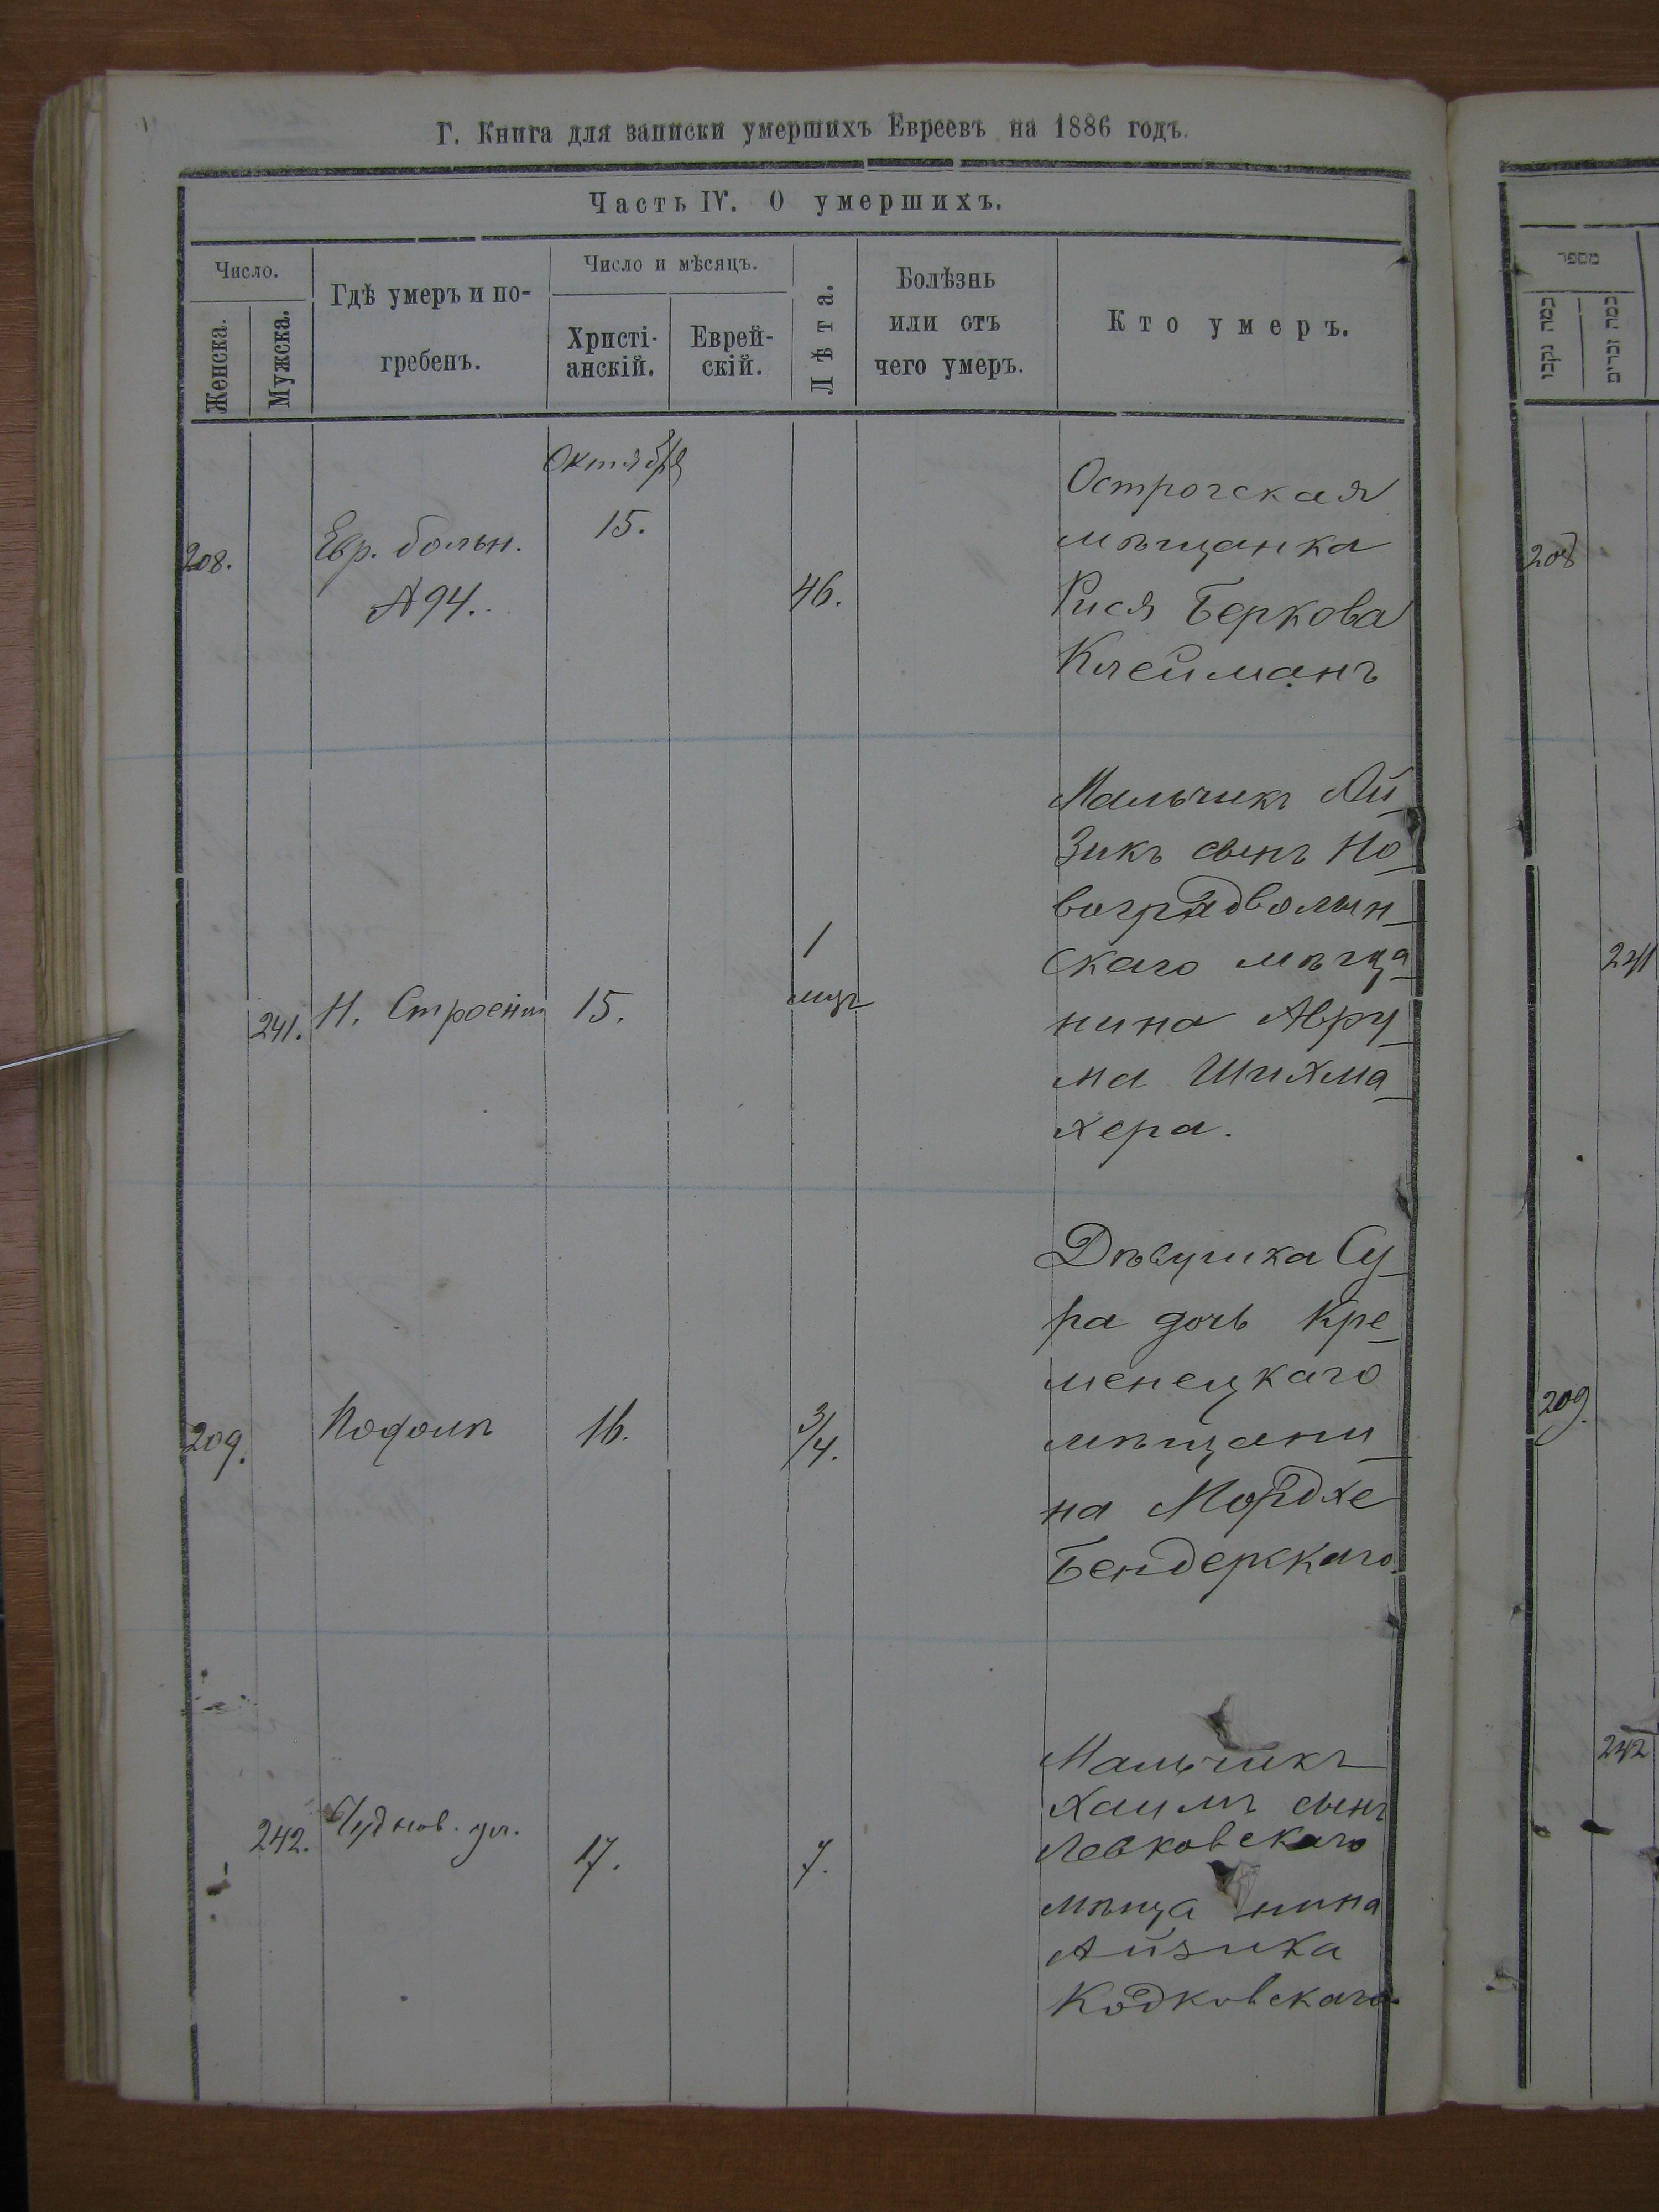 Г. Книга для записки умершихъ Евреевъ на 1886 годъ.
Часть IV. О умершихъ.
Число.
Женска.
Мужска.
Гдѣ умеръ и по-
гребенъ.
Число и мѣсяцъ.
Христі-
анскій.
Еврей-
скій.
Лѣта.
Болѣзнь
или отъ
чего умеръ.
Кто умеръ.
Октября
208.
Евр. больн.
А 94.
15.
46.
Острогская
мѣщанка
Рися Беркова
Клейманъ
241.
Н. Строенія
15.
1
мцъ
Мальчикъ Ай
зикъ сынъ Но
воградволын
скаго мѣща
нина Авру
ма Шихма
хера.
209.
Подолъ
16.
3/4.
Дѣвушка Су
ра дочь Кре
менецкаго
мѣщани
на Мордхе
Бендерскаго.
242.
Чуднов. ул.
17.
7.
Мальчикъ
Хаимъ сынъ
Левковскаго
мѣщанина
Айзика
Кодковскаго.
מספר
208
241
209.
242